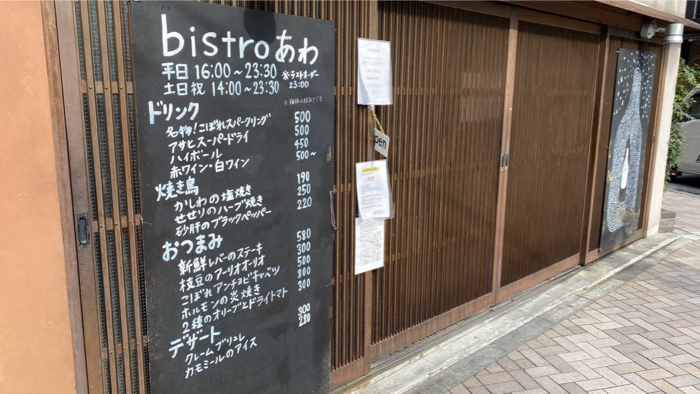 bistro あわ
平日 16:00～23:30 ※ラストオーダー
土日祝 14:00～23:30 23:00
ドリンク
名物！こぼれスパークリング 500
アサヒスーパードライ 500
ハイボール 450
赤ワイン・白ワイン 500～
焼き鳥
かしわの塩焼き 190
せせりのハーブ焼き 250
砂肝のブラックペッパー 220
おつまみ
新鮮レバーのステーキ 580
枝豆のアーリオオーリオ 300
こぼれアンチョビキャベツ 500
ホルモンの炭焼き 800
2種のオリーブとドライトマト 300
デザート
クレームブリュレ 300
カモミールのアイス
pen